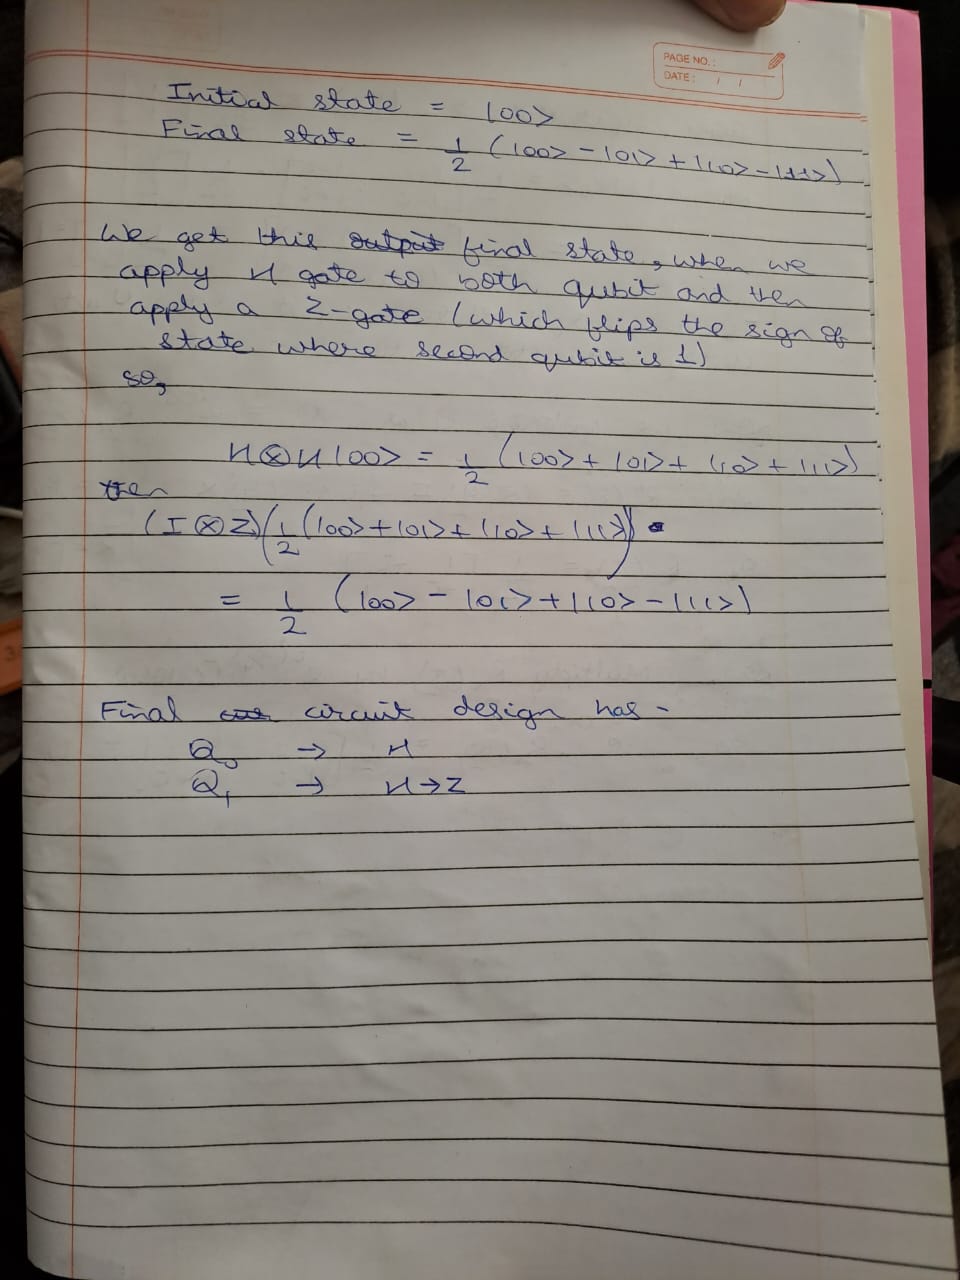 PAGE NO.:
DATE: / /
Initial state = |00>
Final state = 1/2 (|00> - |01> + |10> - |11>)
We get this output final state, when we
apply H gate to both qubit and then
apply a Z-gate (which flips the sign of
state where second qubit is 1)
so,
H⊗H|00> = 1/2 (|00> + |01> + |10> + |11>)
then
(I ⊗ Z)(1/2 (|00> + |01> + |10> + |11>))
= 1/2 (|00> - |01> + |10> - |11>)
Final circuit design has -
Q₀ → H
Q₁ → H→Z